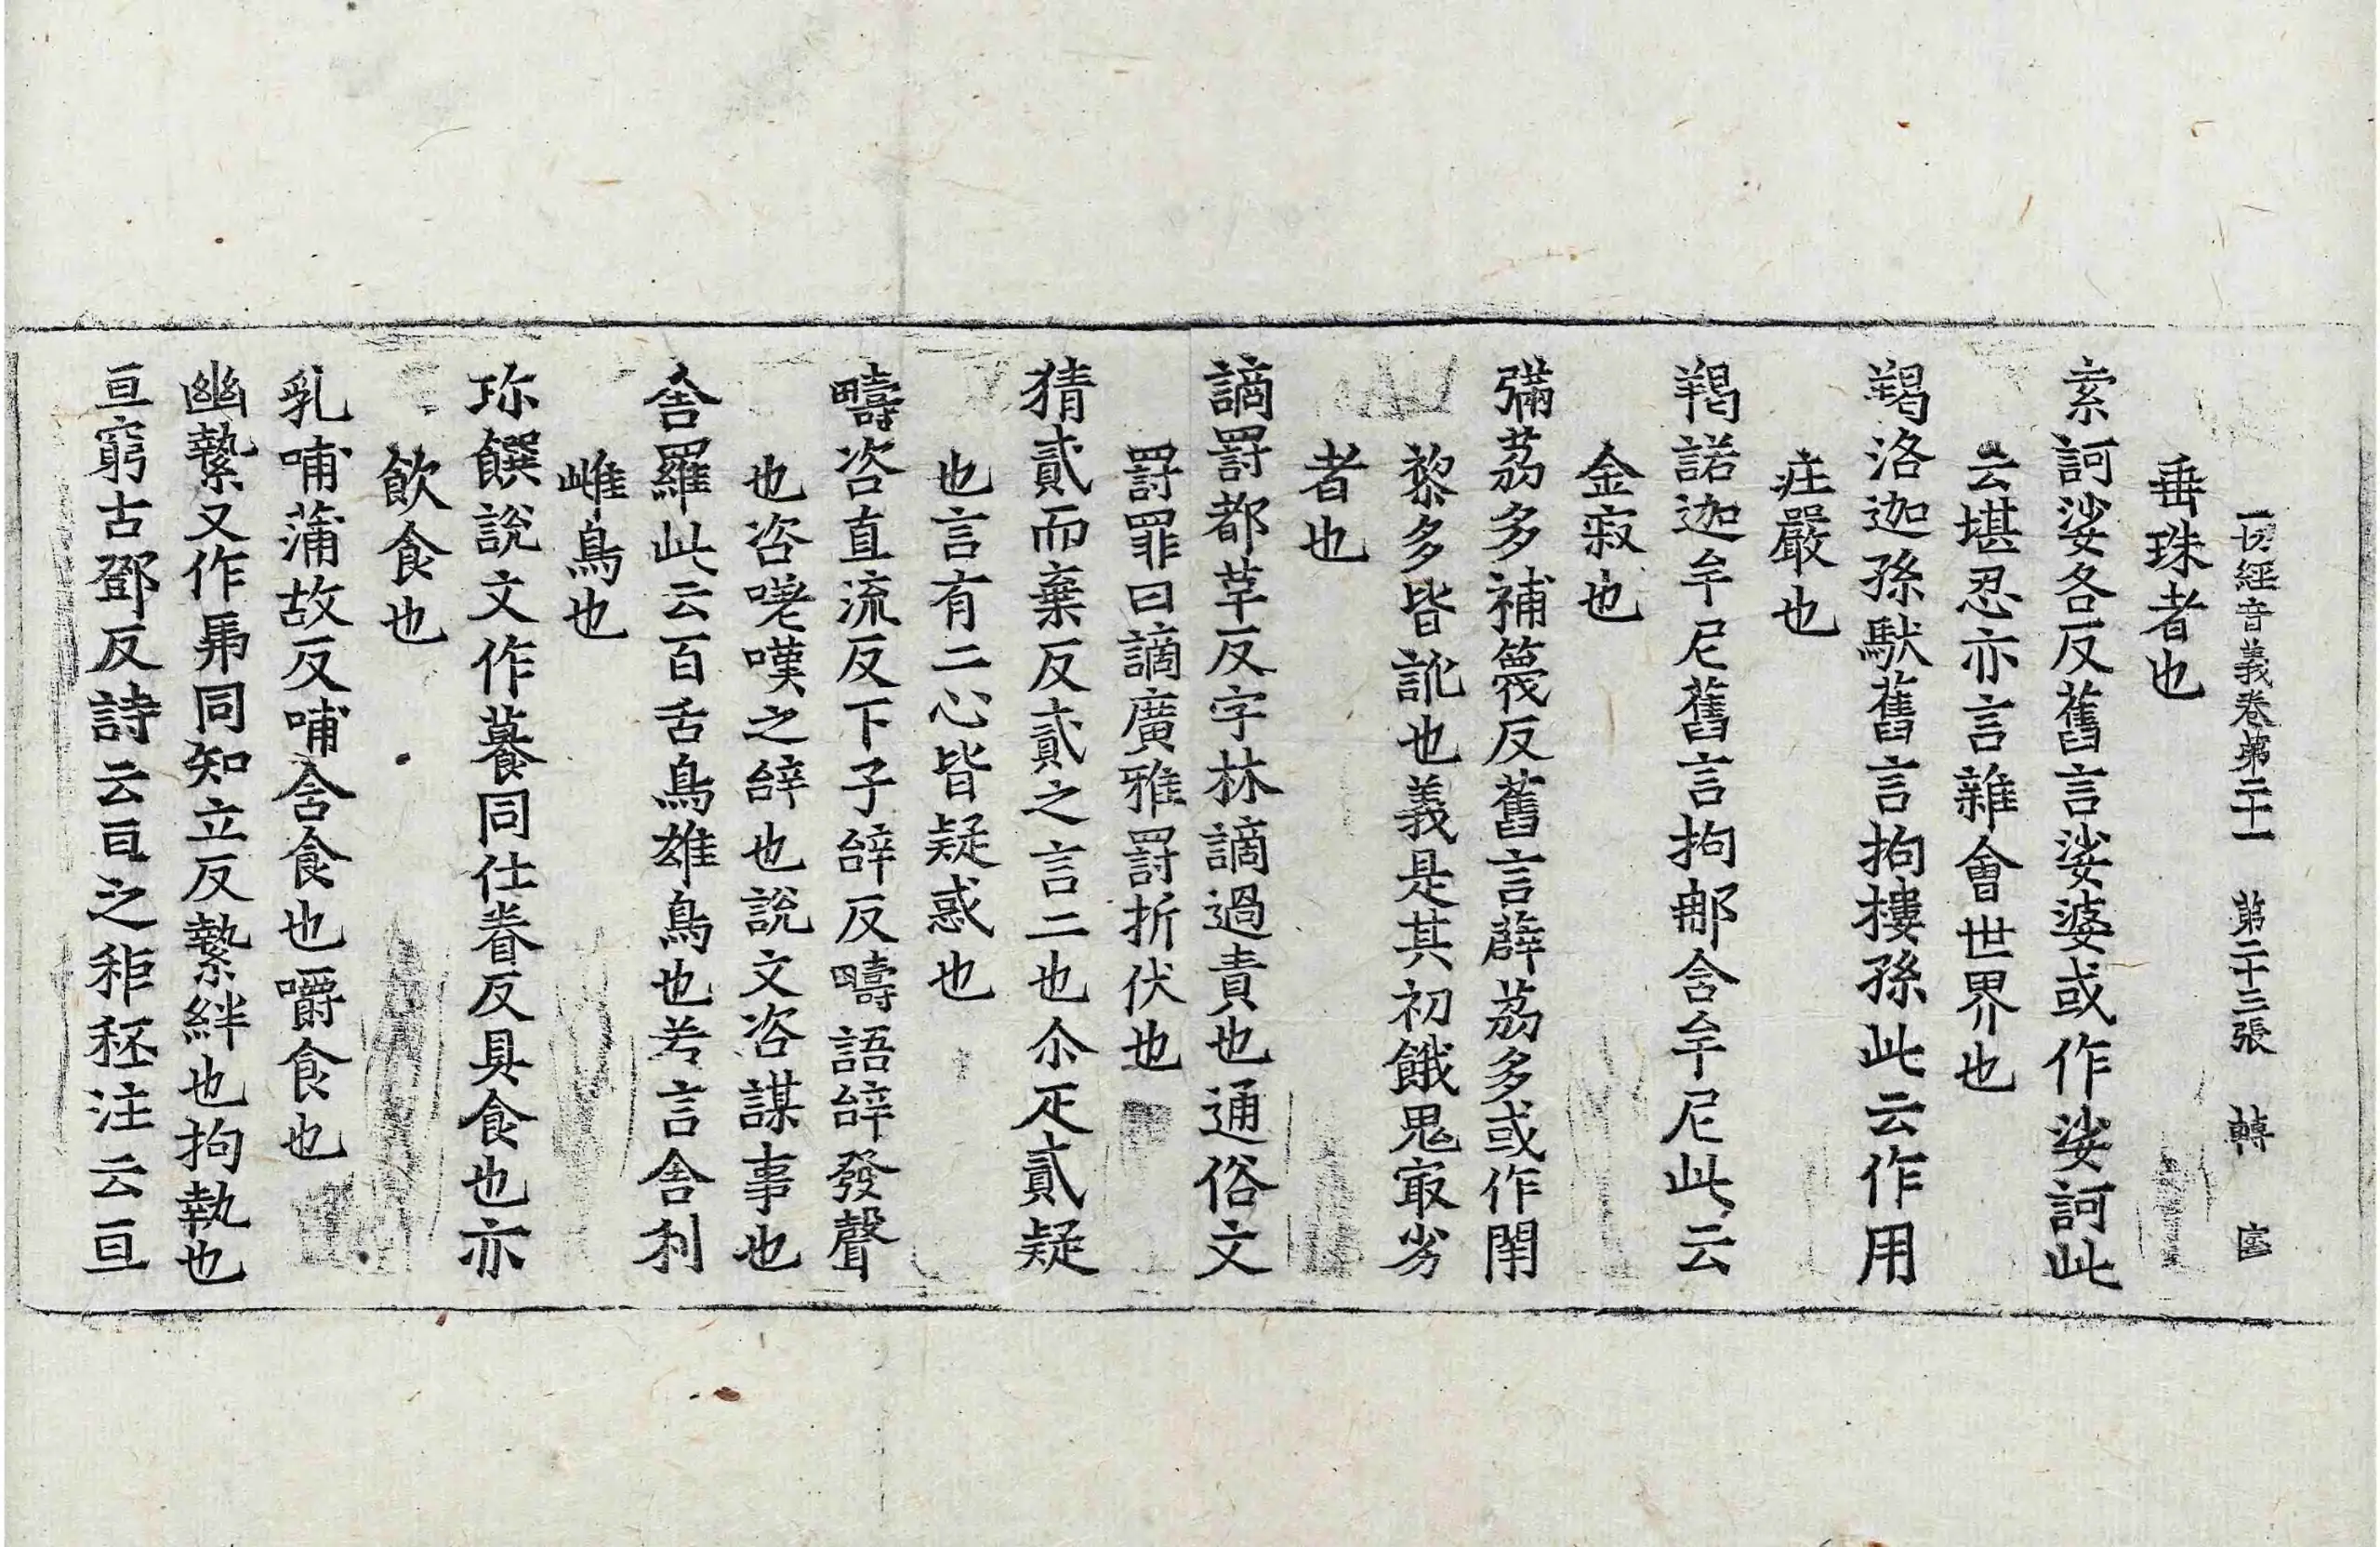 一切經音義卷第二十一 第二十三張 轉
垂珠者也
索訶娑各反舊言娑婆或作娑訶此
云堪忍亦言雜會世界也
羯洛迦孫馱舊言拘摟孫此云作用
庄嚴也
羯諾迦牟尼舊言拘那含牟尼此云
金寂也
彌荔多補篾反舊言薜荔多或作閇
黎多皆訛也義是其初餓鬼㝡劣
者也
謫罰都革反字林謫過責也通俗文
罰罪曰謫廣雅罰折伏也
猜貳而棄反貳之言二也尒疋貳疑
也言有二心皆疑惑也
疇咨直流反下子辝反疇語辝發聲
也咨嗟嘆之辝也說文咨謀事也
舍羅此云百舌鳥雄鳥也若言舍利
雌鳥也
珎饌說文作䉵同仕眷反具食也亦
飲食也
乳哺蒲故反哺含食也嚼食也
幽縶又作馽同知立反縶絆也拘執也
亘窮古鄧反詩云亘之秬秠注云亘